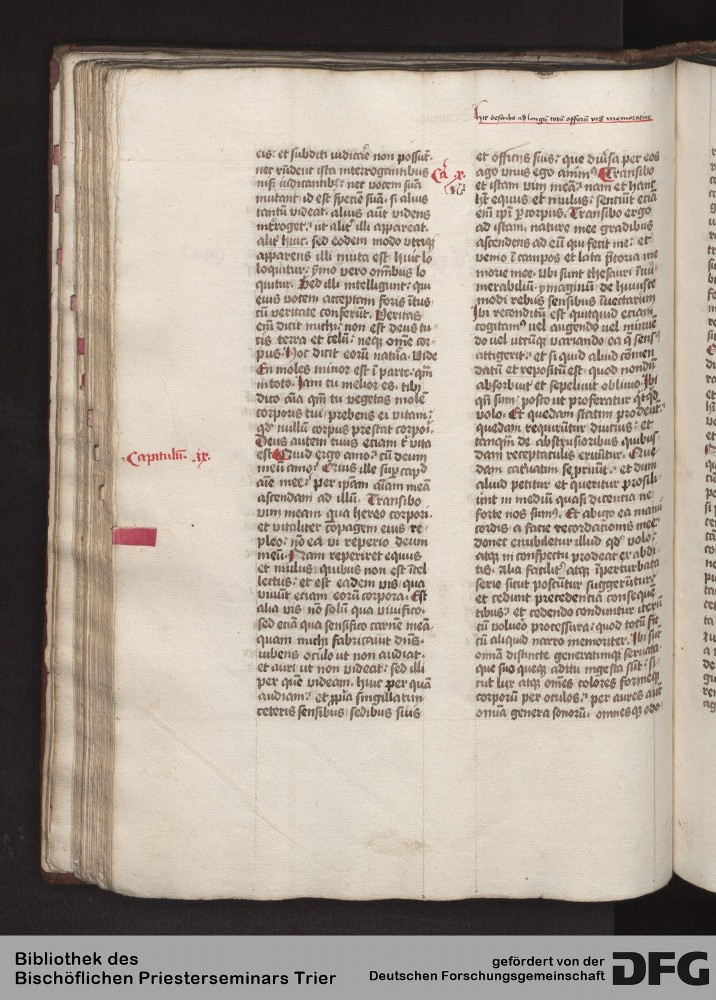 hic describit ad longũ totũ officiũ vis memoratiue
eis· et subditi iudicar̃e non possũt·
nec rñdent ista interrogantibus
nisi iudicantibꝫ· nec vocem suã
mutant id est speciẽ suã· si alius
tantũ videat· alius aũt videns
interroget· ut alitͬ illi appareat·
alitͬ huic· sed eodem modo vtriqꝫ
apparens illi muta est· huic lo
loquitur· ymo vero omĩbus lo
quitur· Sed illi intelligunt· qui
eius vocem acceptam foris ĩtus
cũ veritate conferũt. Veritas
em̃ dicit michi· non est deus tu
us terra et celũ· neqꝫ om̃e cor
pus· Hoc dicit eorũ natura· Vide
En moles minor est ĩ parte· qm̃
in toto· Iam tu melior es· tibi
dico aĩa qm̃ tu vegetas molẽ
corporis tui prebens ei vitam·
qđ nullũ corpus prestat corpori·
Deus autem tuus etiam t̃ vita
est Quid ergo amo· cũ deum
Capitulũ· ix·
meũ amo· Quis ille suꝑ caput
aĩe mee· per ip̃am aĩam meã
ascendam ad illũ· Transibo
vim meam qua hereo corpori·
et vitaliter cõpagem eius re
pleo· nõ ea vi reperio deum
meũ· Nam reperiret equus
et mulus· quibus non est ĩtel
lectus· et est eadem vis qua
viuũt etiam eorũ corpora· Est
alia vis nõ solũ qua viuifico·
sed etiã qua sensifico carnẽ meã·
quam michi fabricauit dñs·
iubens oculo ut non audiat·
et auri ut non videat· sed illi
per quẽ videam· huic per quã
audiam· et ꝓpia singillatim
ceteris sensibus sedibus suis
et officijs suis· que diũsa per eos
ago vnus ego animꝰ· Transibo
Ca· x·
et istam vim meã· nam et hanc
hꝫ equus et mulus· sentiũt etiã
em̃ ip̃i ꝑ corpus· Transibo ergo
ad istam· nature mee gradibus
ascendens ad eũ qui fecit me· et
venio ĩ campos et lata p̃toria me
morie mee· Vbi sunt thesauri ĩnu
merabiliũ ymaginũ· de huiusce
modi rebus sensibus ĩuectarum
Ibi reconditũ est quitquid etiam
cogitamꝰ vel augendo vel minuẽ
do vel utcũqꝫ variando ea q̃ sensꝰ
attigerit· et si quid aliud cõmen
datũ et repositũ est· quod nondũ
absorbuit et sepeliuit obliuio· Ibi
qñ sum· posco ut proferatur qͥtqͥd
volo· Et quedam statim prodeũt·
quedam requirũtur diutius· et
tamqm̃ de abstrusioribus quibus
dam receptaculis eruũtͬ· Que
dam cateruatim se pruũt· et dum
aliud petitur et queritur prosili
unt in mediũ quasi dicentia ne
forte nos sumꝰ· Et abigo ea manu
cordis a facie recordacionis mee
donec enubiletur illud qđ volo·
atqꝫ in conspectu prodeat ex abdi
tis· Alia facilitͬ atqꝫ ĩperturbata
serie sicut poscũtur suggerũturꝰ
et cedunt precedencia conseque
tibus· et cedendo conduntur iterũ
cũ voluero processura· quod totũ fit
cũ aliquid narro memoriter· Ibi sũt
omĩa distincte generatimqꝫ seruata
que suo queqꝫ aditu ingesta sũt· si
cut lux atqꝫ om̃es colores formeqꝫ
corporũ per oculos· per aures aũt
omĩa genera sonorũ· omnesqꝫ odo
Bibliothek des
Bischöflichen Priesterseminars Trier
gefördert von der
Deutschen Forschungsgemeinschaft
DFG